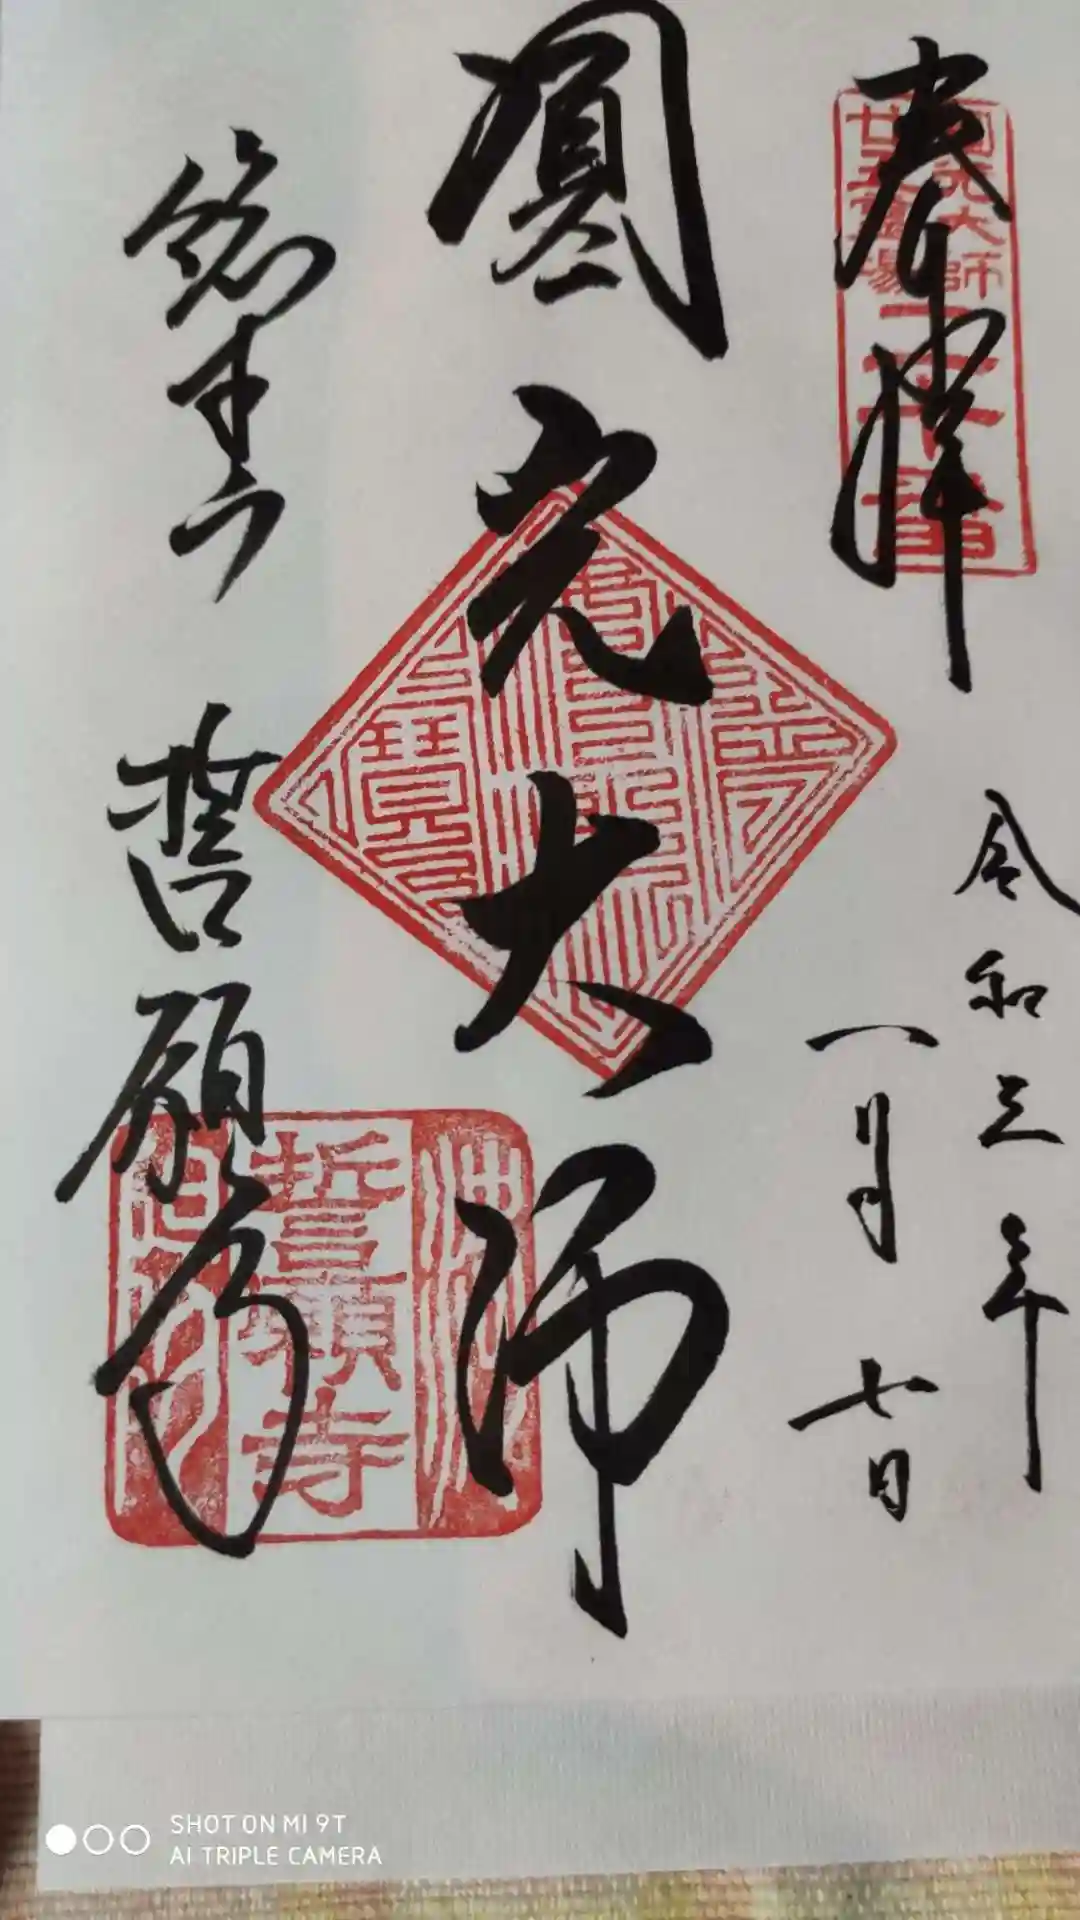 奉拝
圓光大師
廿五霊場
二十番
令和三年
一月七日
圓光大師
総本山
誓願寺
誓願寺
SHOT ON MI 9T
AI TRIPLE CAMERA